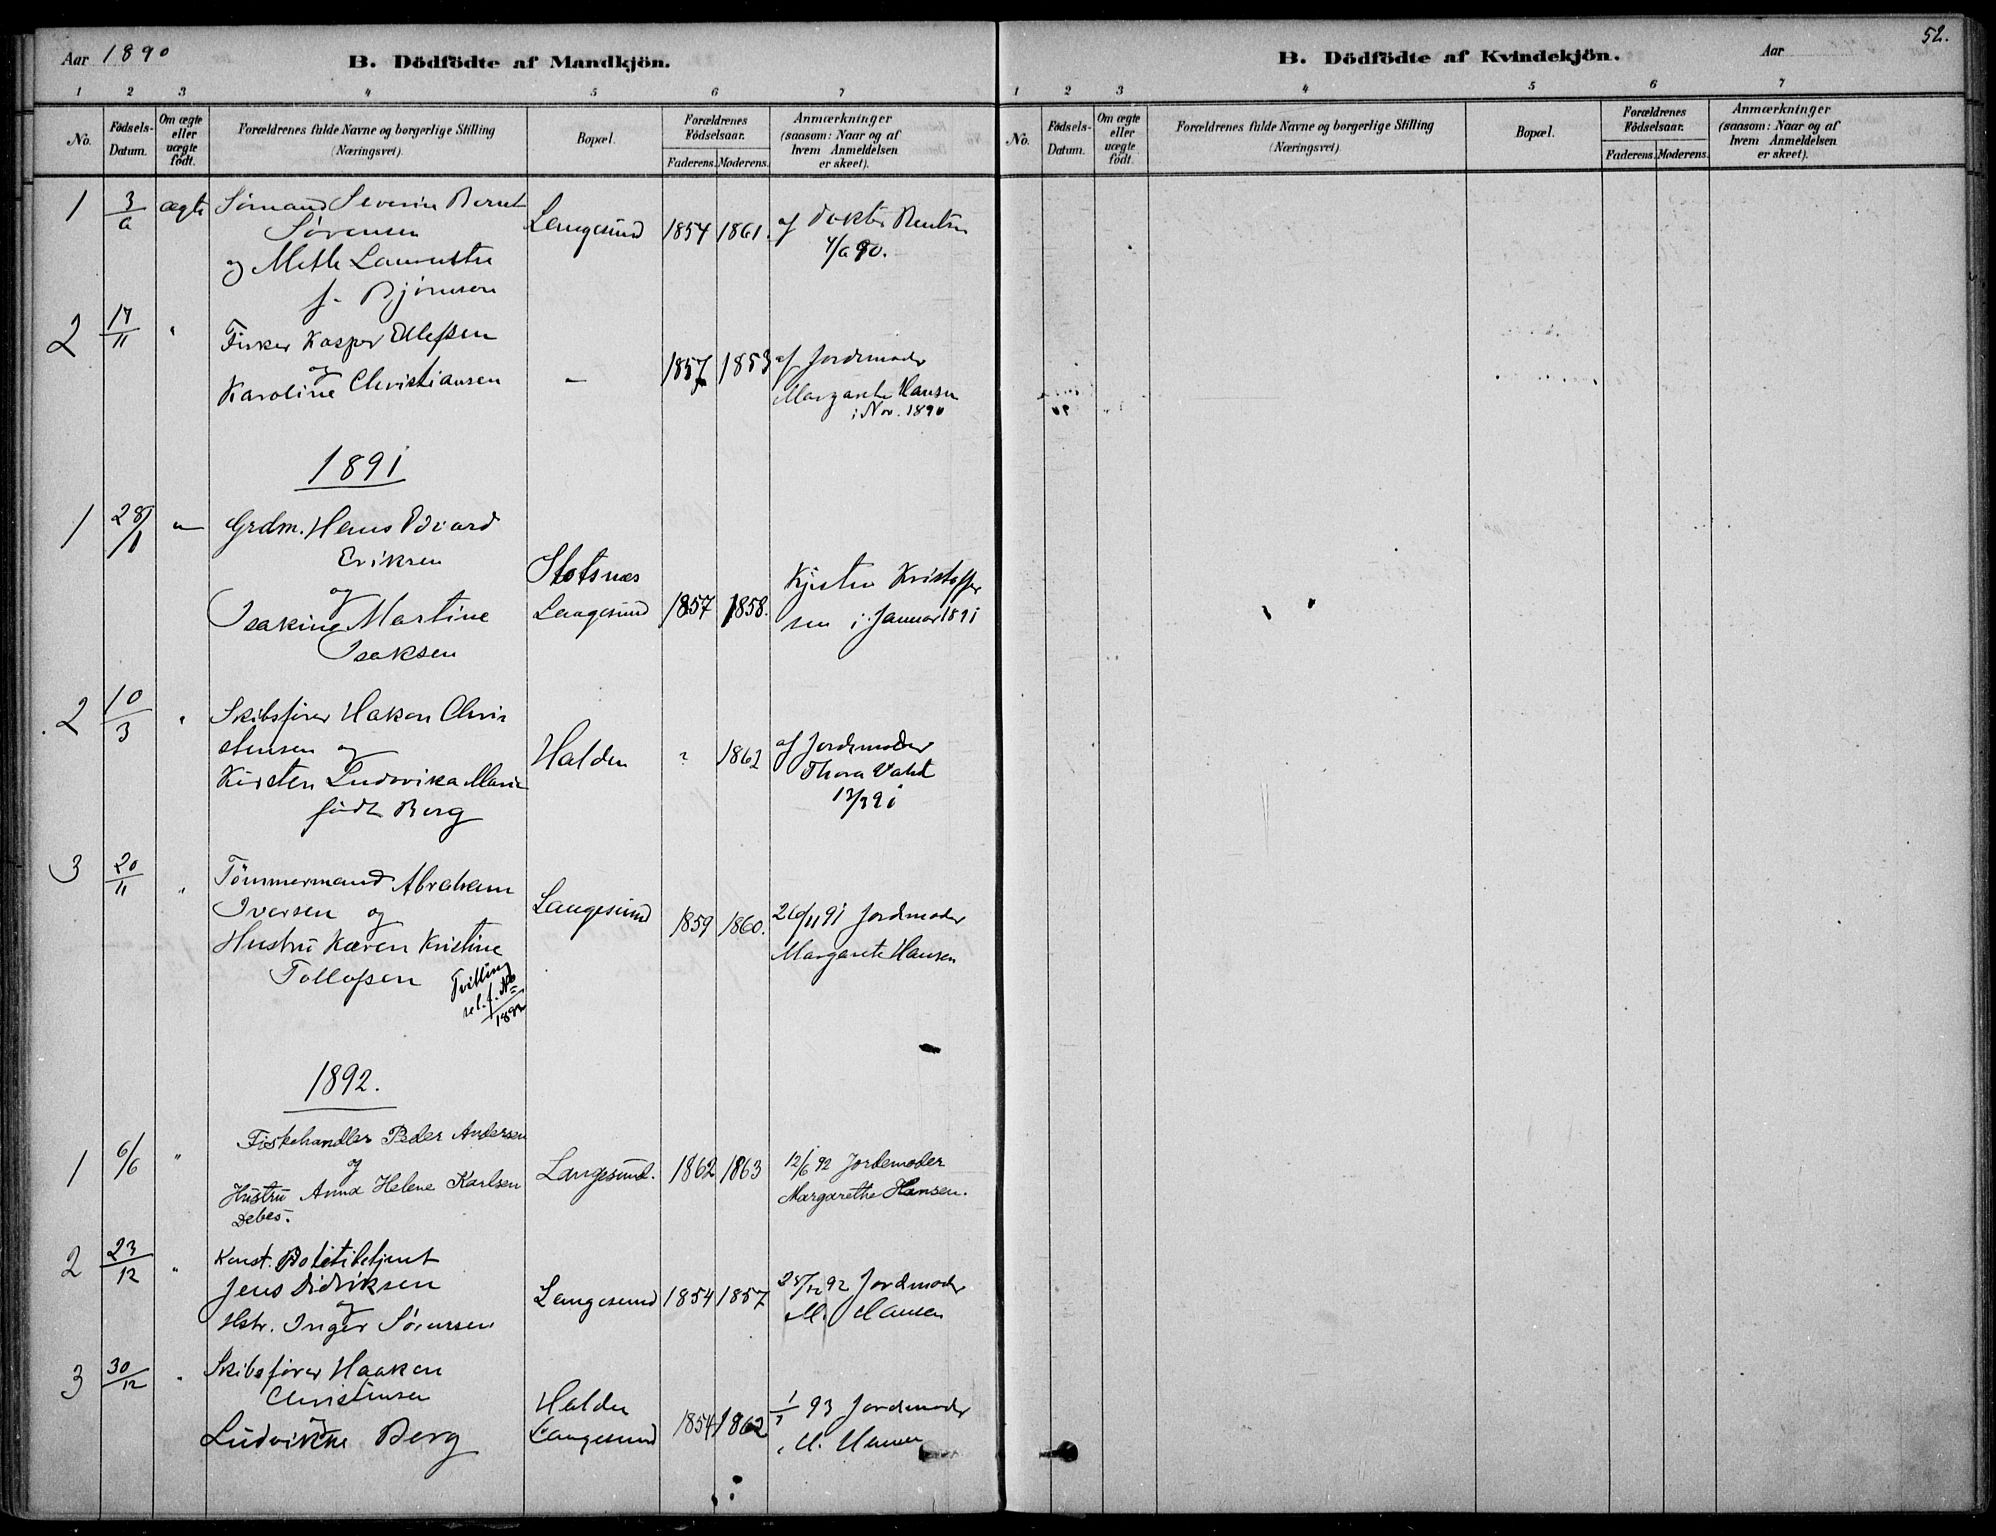 Aar 1890
B. Dödfödte af Mandkjön.
1 2 3 4 5 6 7
No.
Födsels-Datum.
Om ægte eller uægte födt.
Forældrenes fulde Navne og borgerlige Stilling (Næringsvei).
Bopæl.
Forældrenes Födselsaar.
Faderens. Moderens.
Anmærkninger (saasom: Naar og af hvem Anmeldelsen er skeet).
1 3/6 ægte Sømand Severin Bernt
Sørensen
og Mette
f. Bjørnsen
Langesund 1854 1861. af Doktor
4/6 90.
2 17/11 " Fisker Kasper Ellefsen
og
Karoline Christiansen
— 1857 1853 af Jordemoder
Margarete Hansen
i Nov. 1890
1891
1 28/1 — Grdm. Hans Edvard
Eriksen
og
Isakine Martine
Isaksen
Stotsnæs
Langesund 1857 1858.
Kjersten Kristoffer
sen i Januar 1891
2 10/3 " Skibsfører Hakon Chri
stensen og
Kirsten Ludovika Marie
født Berg
Halden ? 1862 af Jordemoder
Thora Vahl
13/3 91
3 20/11 " Tömmermand Abraham
Iversen og
Hustru Karen Kristine
Tollefsen
Tvilling
Langesund 1859 1860. 26/11 91 Jordemoder
Margarete Hansen
1892.
1 6/6 " Fiskehandler Peder Andersen
og
Hustru Anna Helene Karlsen
Debes.
Langesund. 1862 1863 12/6 92 Jordemoder
Margarethe Hansen.
2 23/12 " Konst. Politibetjent
Jens Didriksen
og
Hstr. Inger Sørensen
Langesund 1854 1857 28/12 92 Jordmoder
M. Hansen
3 30/12 " Skibsfører Haakon
Christensen
og
Ludvikke Berg
Halden
Langesund 1854 1862 93 Jordmoder
M. Hansen
52.
B. Dödfödte af Kvindekjön.
Aar
1 2 3 4 5 6 7
No.
Födsels-Datum.
Om ægte eller uægte födt.
Forældrenes fulde Navne og borgerlige Stilling (Næringsvei).
Bopæl.
Forældrenes Födselsaar.
Faderens. Moderens.
Anmærkninger (saasom: Naar og af hvem Anmeldelsen er skeet).